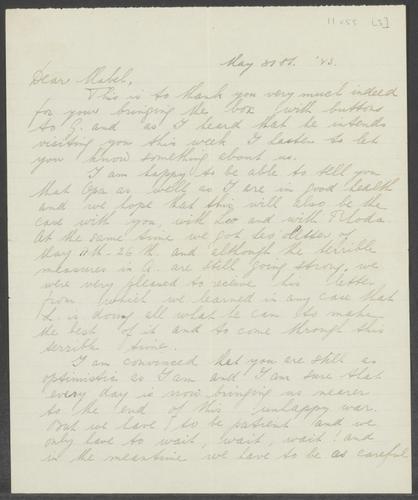 11 c 55 [5]
May 30th. '43.
Dear Mabel,
This is to thank you very much indeed
for your bringing the box with buttons
to G. and as I heard that he intends
visiting you this week I hasten to let
you know something about us.
I am happy to be able to tell you
that Opa as well as I are in good health
and we hope that this will also be the
case with you, with Leo and with
At the same time we got Leo's letter of
May 11th-26th. and although the terrible
measures in A. are still going strong, we
were very pleased to receive his letter
from which we learned in any case that
L. is doing all what he can to make
the best of it and to come through this
terrible time.
I am convinced that you are still as
optimistic as I am and I am sure that
every day is now bringing us nearer
to the end of this unhappy war.
But we have to be patient and we
only have to wait, wait, wait! and
in the meantime we have to be as careful